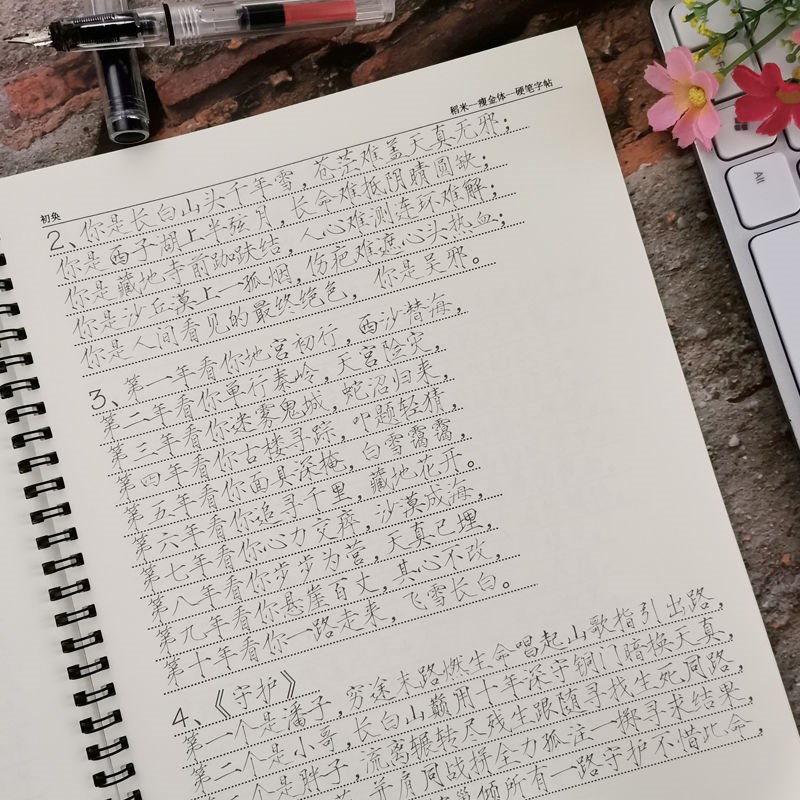 稻米—瘦金体—硬笔字帖
初奂
2、你是长白山头千年雪，苍茫难盖天真无邪；
你是西子湖上半弦月，长命难抵阴晴圆缺；
你是藏地寺前跏趺结，人心难测连环难解；
你是沙丘漠上一孤烟，伤疤难遮心头热血；
你是人间看见的最终绝色，你是吴邪。
3、第一年看你地宫初行，西沙替海，
第二年看你单行秦岭，天宫险灾，
第三年看你迷雾鬼城，蛇沼归来，
第四年看你古楼寻踪，吓题轻猜，
第五年看你面具深掩，白雪霭霭，
第六年看你追寻千里，藏地花开。
第七年看你心力交瘁，沙漠成海，
第八年看你步步为营，天真已埋，
第九年看你悬崖百丈，其心不改，
第十年看你一路走来，飞雪长白。
4、《守护》
第一个是潘子，穷途末路燃生命唱起山歌指引出路，
第二个是小哥，长白山巅用十年深守铜门暗换天真，
个是胖子，流离辗转尽残生跟随寻找生死同路，
并肩同战拼全力孤注一掷寻求结果，
倾所有一路守护不惜此命，
Alt